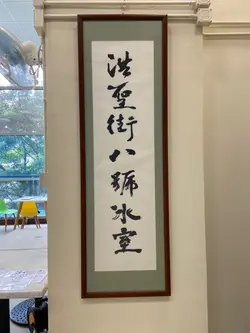 浩聖街八號冰室